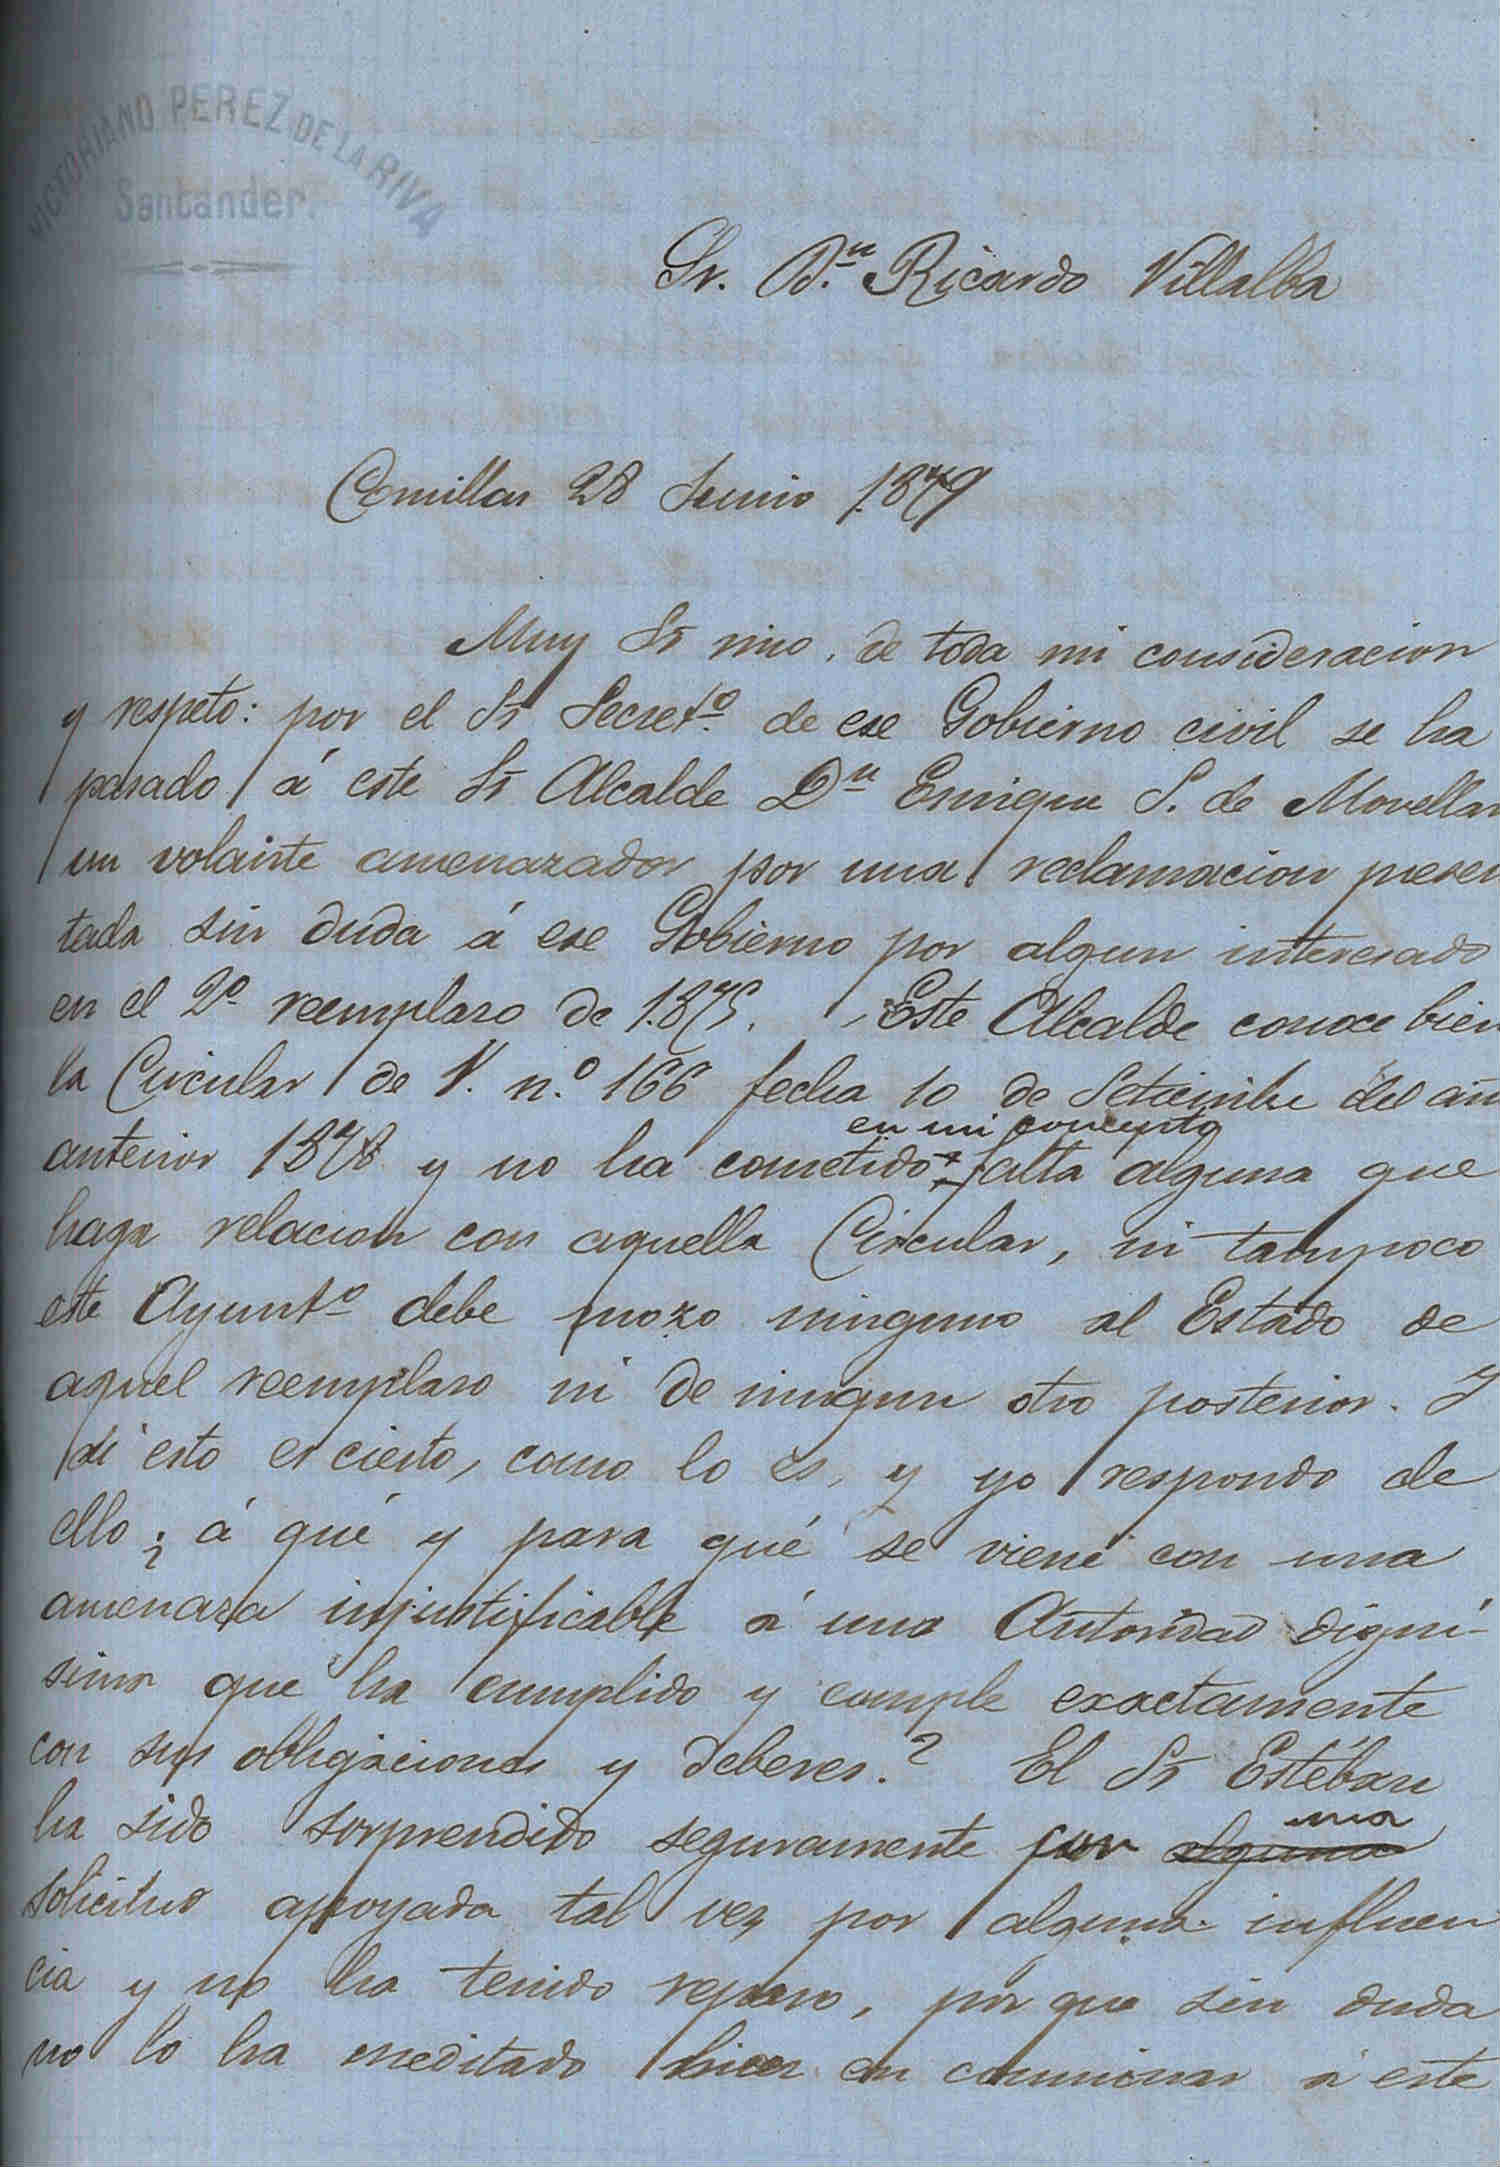 VICTORIANO PEREZ DE LA RIVA
Santander.
Sr. D.n Ricardo Villalba
Comillas 28 Junio 1.879
Muy Sr mio, de toda mi consideracion
y respeto: por el Sr Secret.o de ese Gobierno civil se ha
pasado á este Sr Alcalde Dn Enrique S. de Movellan
un volante amenazador por una reclamacion presen
tada sin duda á ese Gobierno por algun interesado
en el 2o reemplaso de 1.875. Este Alcalde conoce bien
la Circular de V. n.o 166 fecha 10 de Setiembre del añ
en mi concepto
anterior 1878 y no ha cometido falta alguna que
haga relacion con aquella Circular, ni tampoco
este Ayunt.o debe mozo ninguno al Estado de
aquel reemplaso ni de ningun otro posterior. Y
si esto es cierto, como lo es, y yo respondo de
ello; ¿á qué y para qué se viene con una
amenaza injustificable á una Autoridad digní-
sima que ha cumplido y cumple exactamente
con sus obligaciones y deberes? El Sr Estéban
ha sido sorprendido seguramente por alguna
una
solicitud apoyada tal vez por alguna influen
cia y no ha tenido reparo, por que sin duda
no lo ha meditado bien en conminar á este